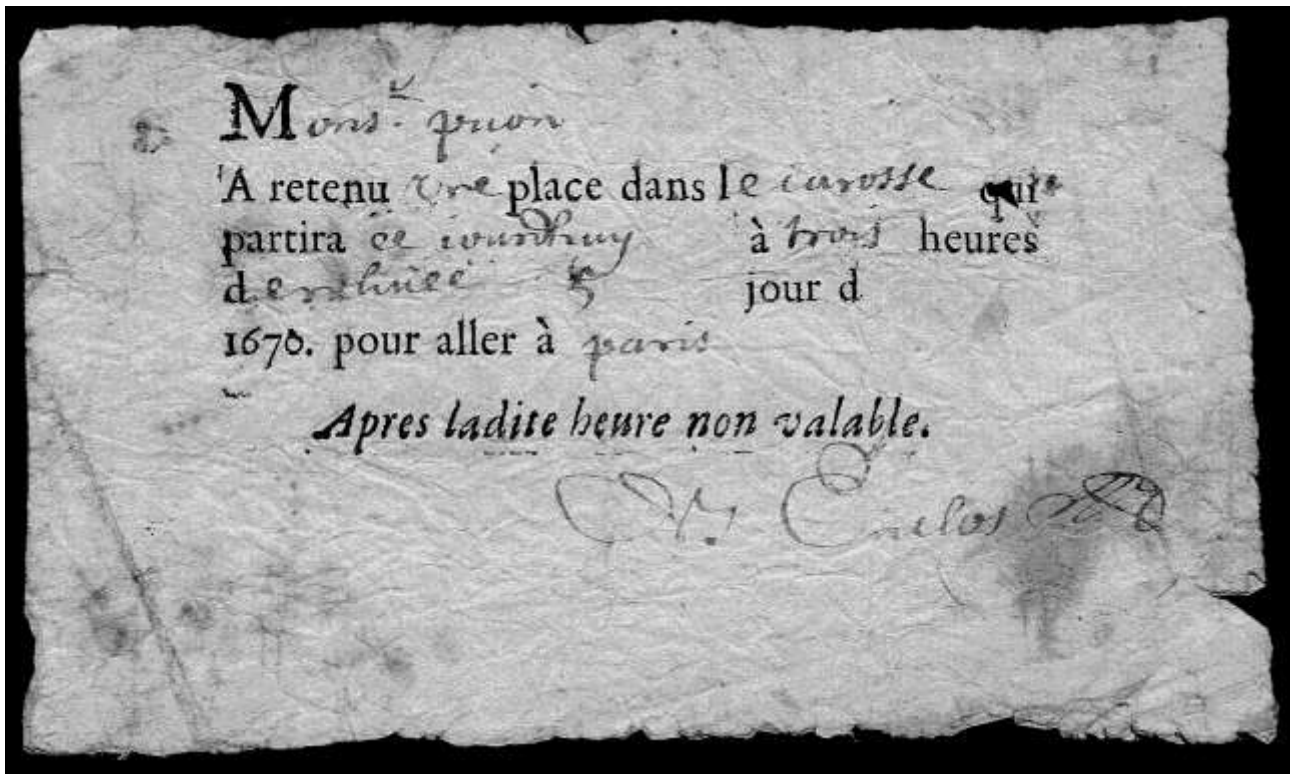 Mons.r prion
A retenu vne place dans le carosse qui
partira ce iourdhuy à trois heures
de relevee jour d
1678. pour aller à paris
Apres ladite heure non valable.